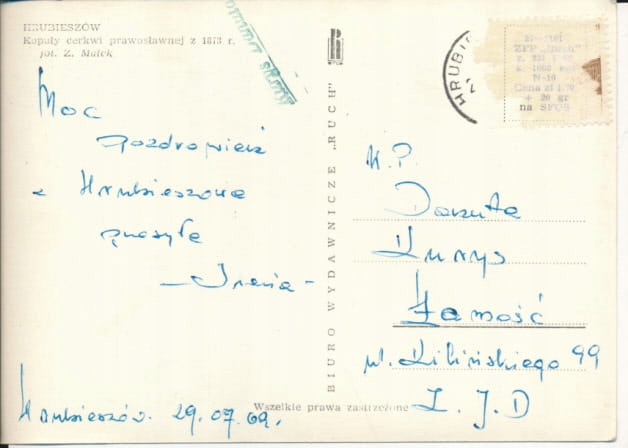 HRUBIESZÓW
Kopuły cerkwi prawosławnej z 1873 r.
fot. Z. Małek
Moc
pozdrowień
z Hrubieszowa
przesyła
- Irena -
Hrubieszów. 29.07.69.
BIURO WYDAWNICZE „RUCH”
Wszelkie prawa zastrzeżone
HRUBIE
ZPP „Ruch”
N-10
Cena zł 1,70
+ 20 gr
na SFOS
W.P.
Danuta
Kurys
Zamość
ul. Kilińskiego 99
L. J. D